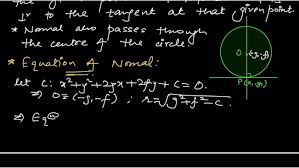 ⊥r to the tangent at that given point.
* Normal also passes through
the centre of the circle
* Equation of Normal:
let C: x²+y²+2gx+2fy+c=0.
⇒ O≡(-g,-f) ; r=√g²+f²-c.
⇒ Eqⁿ
O(-g,-f)
P(x₁,y₁)